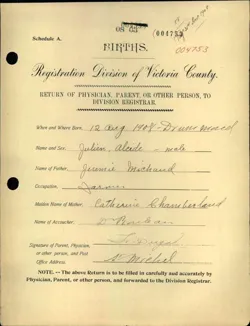 OS 63
004753
Schedule A.
004753
BIRTHS.
Registration Division of Victoria County.
RETURN OF PHYSICIAN, PARENT, OR OTHER PERSON, TO
DIVISION REGISTRAR.
When and Where Born, 12 Aug 1908
Name and Sex: Julien Alcide - male
Name of Father, Jeremie Michaud
Occupation, Farmer
Maiden Name of Mother Catherine Chamberland
Name of Accoucher,
Signature of Parent, Physician,
or other Person, and Post
Office Address. St Michel
NOTE.—The above Return is to be filled in carefully and accurately by
Physician, Parent, or other Person, and forwarded to the Division Registrar.